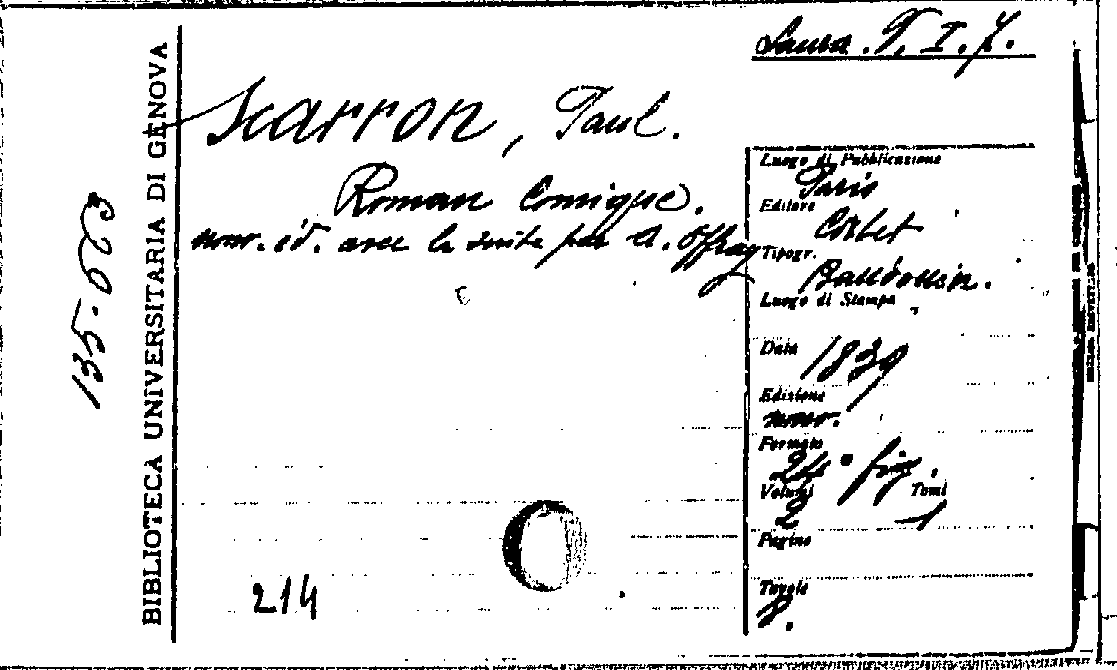 Laura. T. I. 7.
Scarron, Paul.
Roman Comique.
nouv. éd. avec la suite par A. Offray
135.063
BIBLIOTECA UNIVERSITARIA DI GENOVA
Luogo di Pubblicazione
Paris
Editore
Corbet
Tipogr.
Baudouin.
Luogo di Stampa
Data 1839
Edizione
nouv.
Formato
24° fig.
Volumi Tomi
2 1
Pagine
Tavole
8.
214